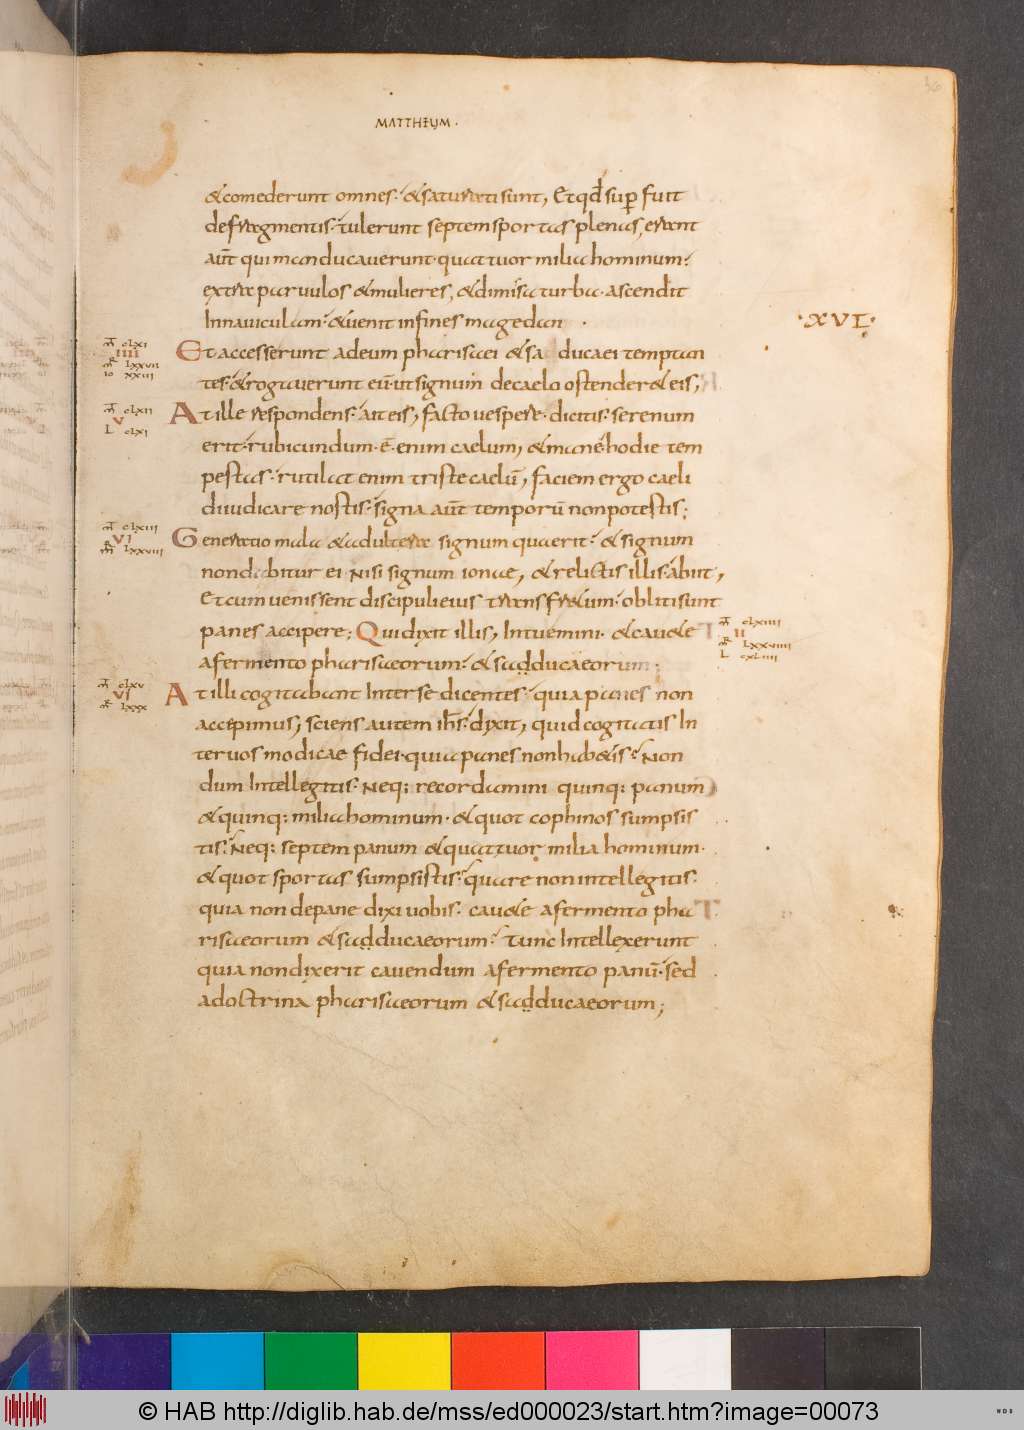 36
MATTHEUM ·
& comederunt omnes · & saturati sunt, Et qđ sup̱ fuit
de fragmentis · tulerunt septem sportas plenas, erant
aut̄ qui manducauerunt · quattuor milia hominum ·
extra paruulos & mulieres, & dimissa turba · ascendit
In nauiculam · & uenit in fines magedan ·
· XVI ·
Et accesserunt ad eum pharisaei & sa ducaei temptan
tes · & rogauerunt eū · ut signum de caelo ostender& eis,
At ille respondens · ait eis, facto uespere · dicitis · serenum
erit · rubicundum · ē · enim caelum, & mane · hodie tem
pestas · rutilat enim triste caelū, faciem ergo caeli
diiudicare nostis · signa aut̄ temporū non potestis;
Generatio mala & adultera signum quaerit · & signum
non dabitur ei · Nisi signum ionae, & relictis illis · abiit,
Et cum uenissent discipuli eius trans fretum · obliti sunt
panes accipere; Qui dixit illis, Intuemini · & cau&e
a fermento pharisaeorum · & sadducaeorum;
At illi cogitabant Inter se dicentes · quia panes non
accepimus, sciens autem ih̄s · dixit, quid cogitatis In
ter uos modicae fidei · quia panes non hab&is · Non
dum Intellegitis · Neq; recordamini quinq; panum
& quinq; milia hominum · & quot cophinos sumpsis
tis · Neq; septem panum & quattuor milia hominum ·
& quot sportas sumpsistis · quare non intellegitis ·
quia non de pane dixi uobis · cau&e a fermento pha
risaeorum & sadducaeorum · Tunc Intellexerunt
quia non dixerit cauendum a fermento panū · sed
a doctrina pharisaeorum & sadducaeorum;
clxi
IIII
lxxvii
io xxiii
clxii
V
L clxi
clxiii
VI
lxxviii
clxiiii
II
lxxviiii
L cxliiii
clxv
VI
lxxx
© HAB http://diglib.hab.de/mss/ed000023/start.htm?image=00073
WDB